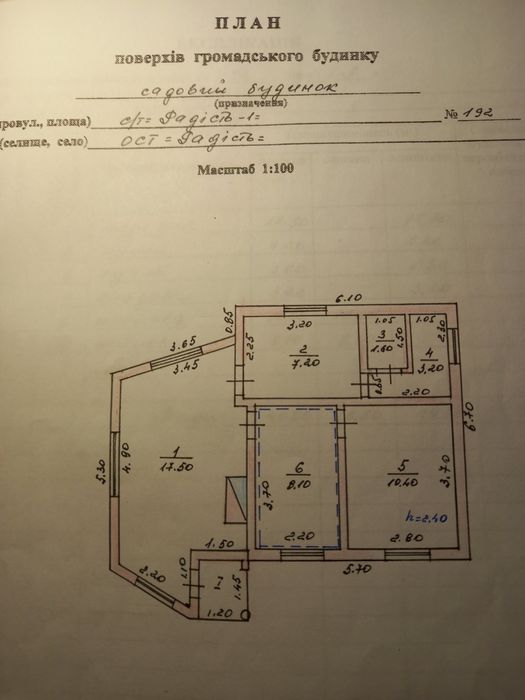 ПЛАН
поверхів громадського будинку
садовий будинок
(призначення)
провул., площа) с/т= Радість-1=
№ 192
(селище, село) ОСТ = Радість =
Масштаб 1:100
6.10
0.85
3.20
1.05
1.05
2.30
3.65
3.45
2.25
2
7.20
3
1.60
1.50
4
3.20
0.65
2.20
6.70
5.30
4.90
1
17.50
6
8.10
3.70
2.20
5
10.40
3.70
h=2.40
2.80
1.50
5.70
2.20
1.10
I
1.45
1.20